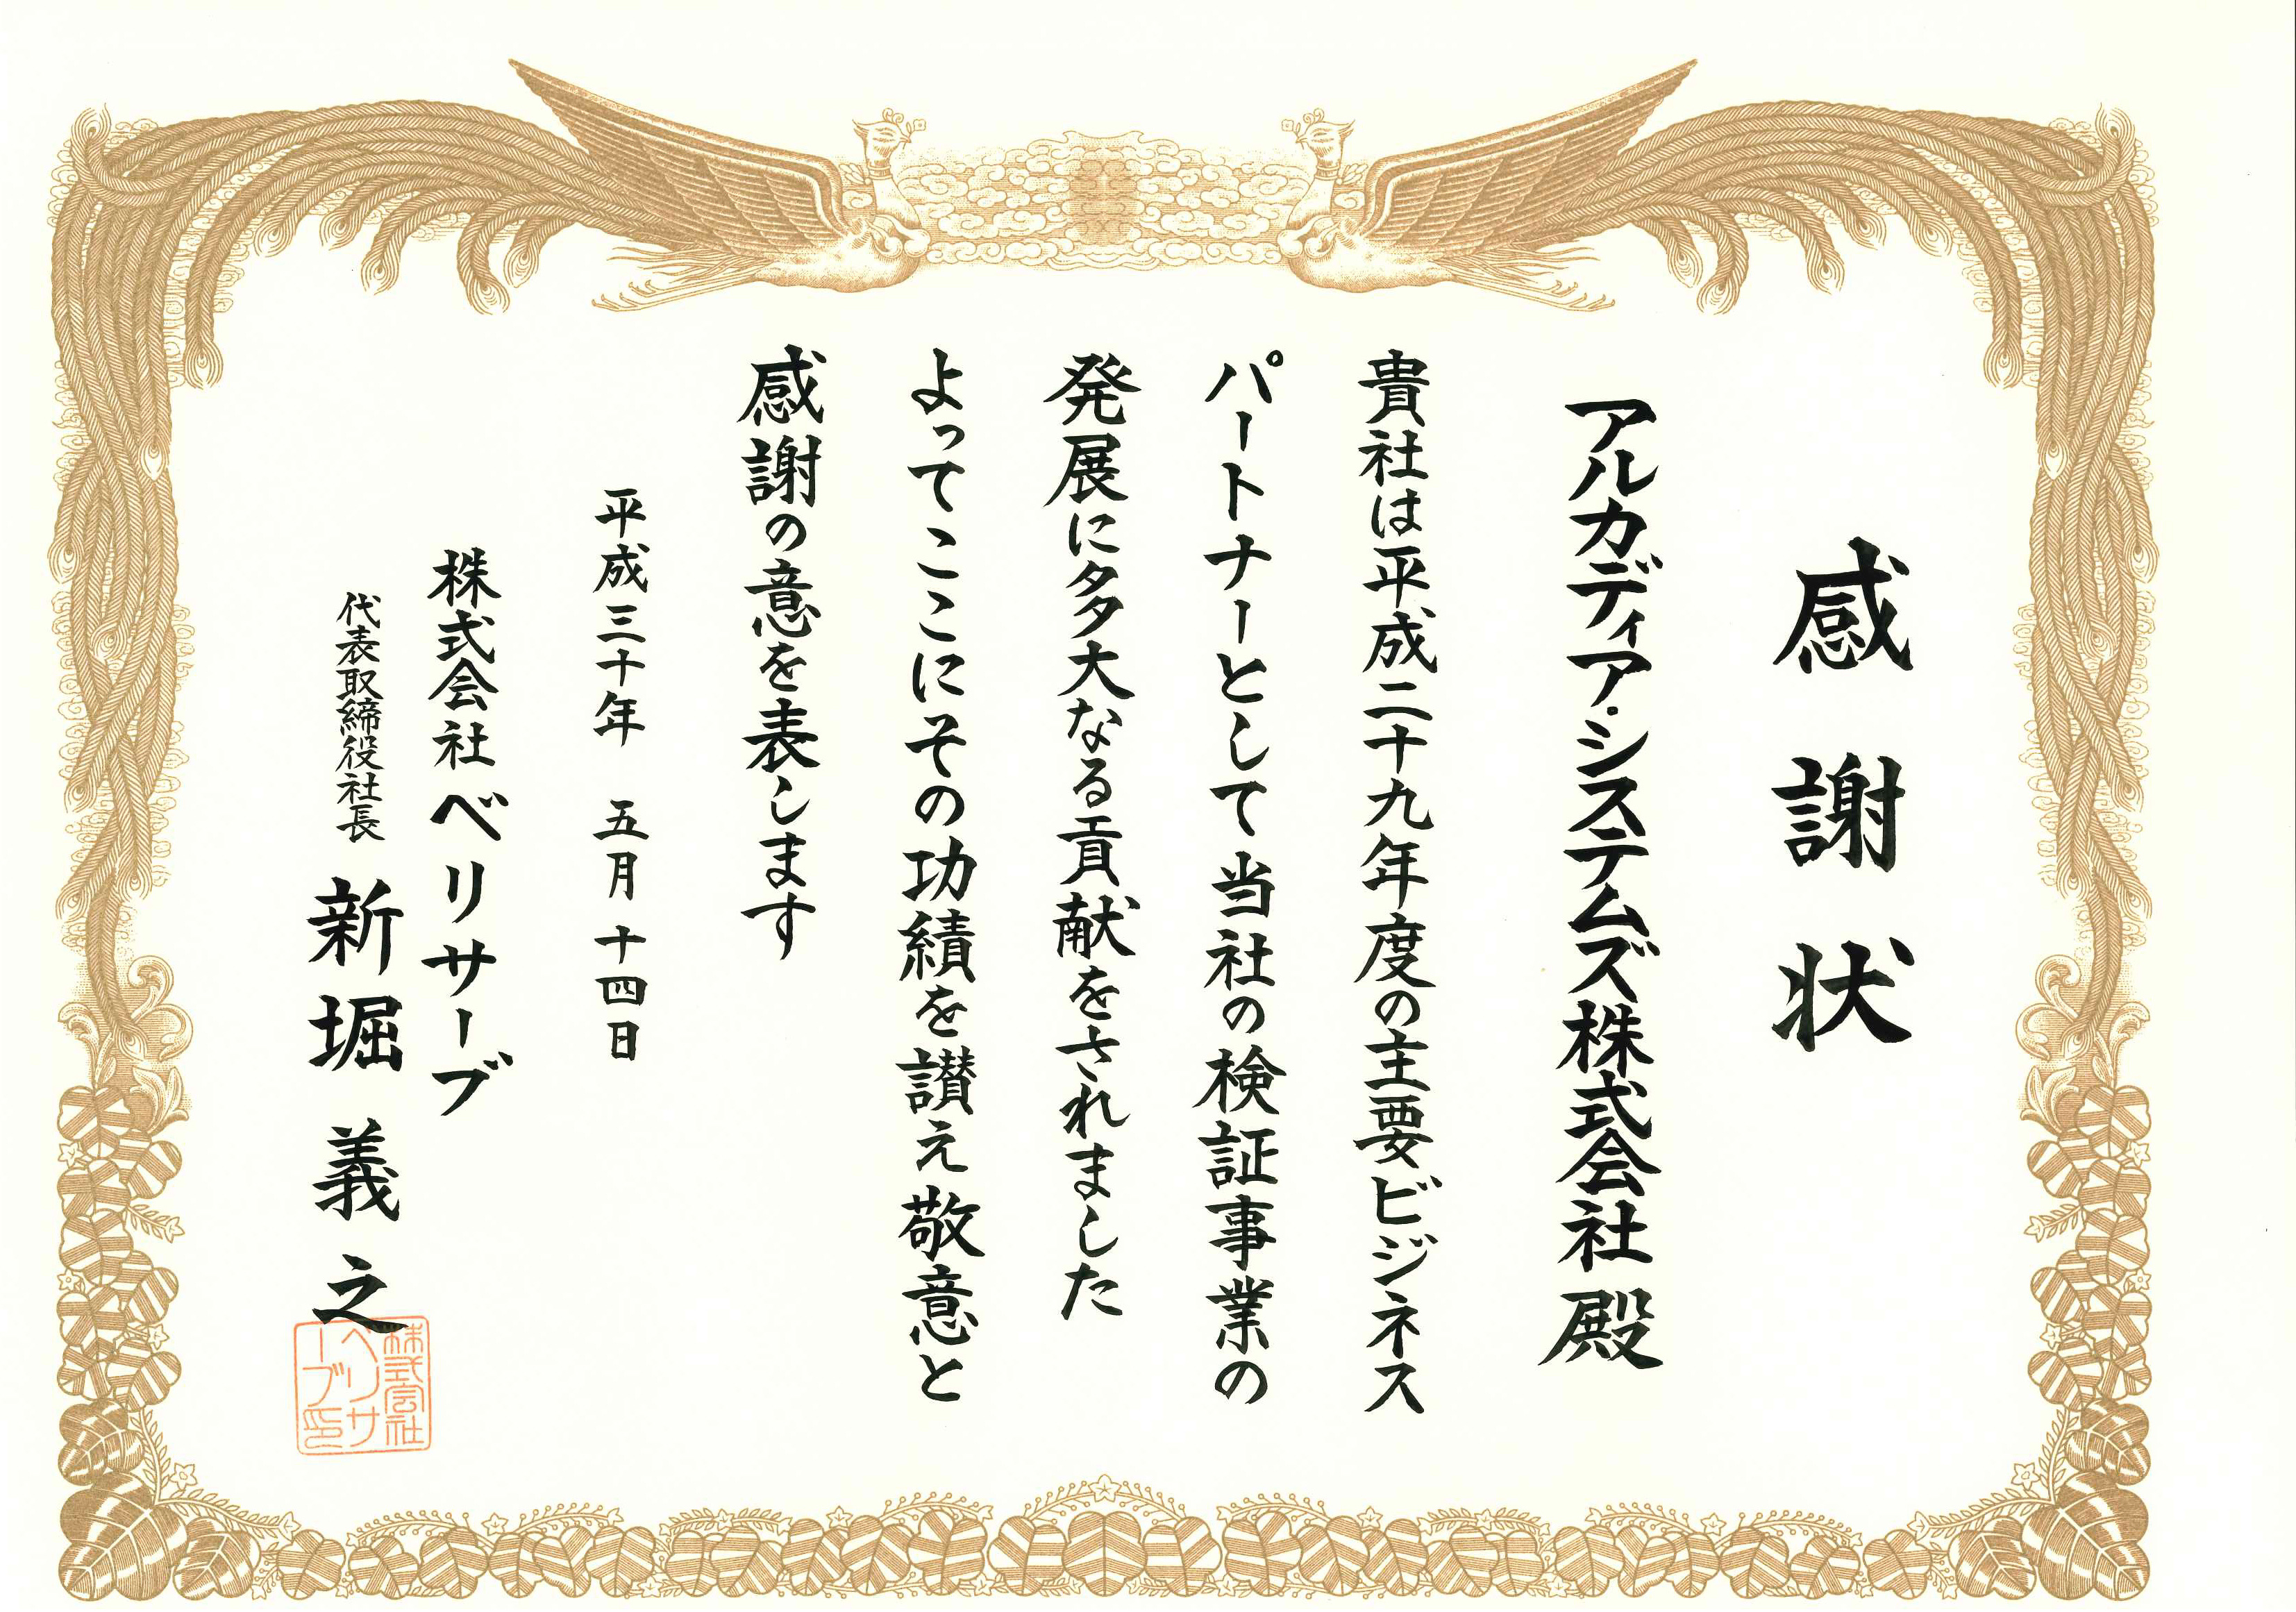 感謝状
アルカディア・システムズ株式会社 殿
貴社は平成二十九年度の主要ビジネス
パートナーとして当社の検証事業の
発展に多大なる貢献をされました
よってここにその功績を讃え敬意と
感謝の意を表します
平成三十年 五月 十四日
株式会社ベリサーブ
代表取締役社長 新堀 義之
株式会社
ベリサ
ーブ印